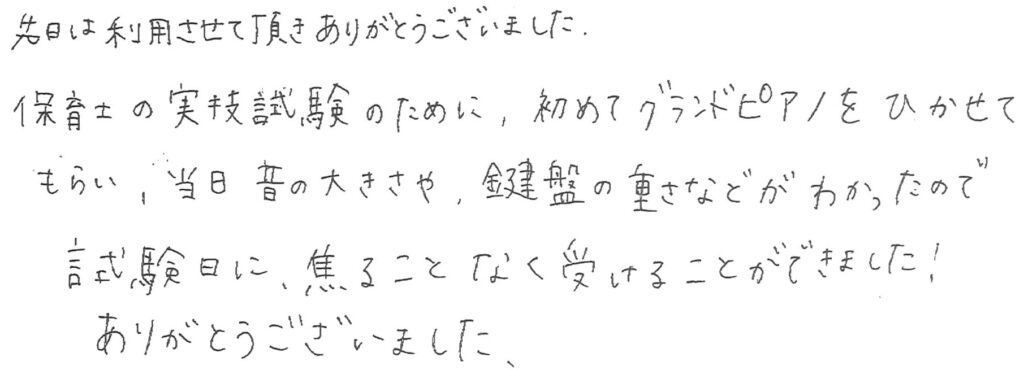 先日は利用させて頂きありがとうございました.
保育士の実技試験のために, 初めてグランドピアノをひかせて
もらい, 当日音の大きさや, 鍵盤の重さなどがわかったので
試験日に、焦ることなく受けることができました!
ありがとうございました、